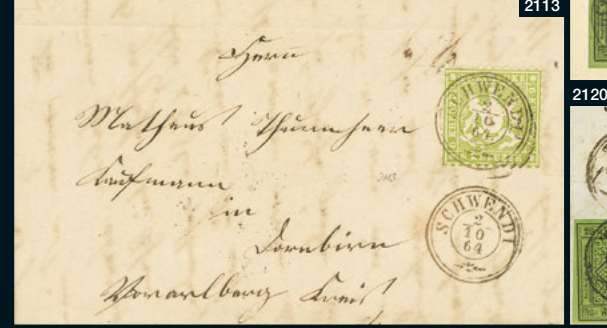 2113
Herrn
Matheus Thurnherr
Kaufmann
in
Dornbirn
Vorarlberg Kreis
SCHWENDI
2
10
64
SCHWENDI
2
10
64
2113
2120